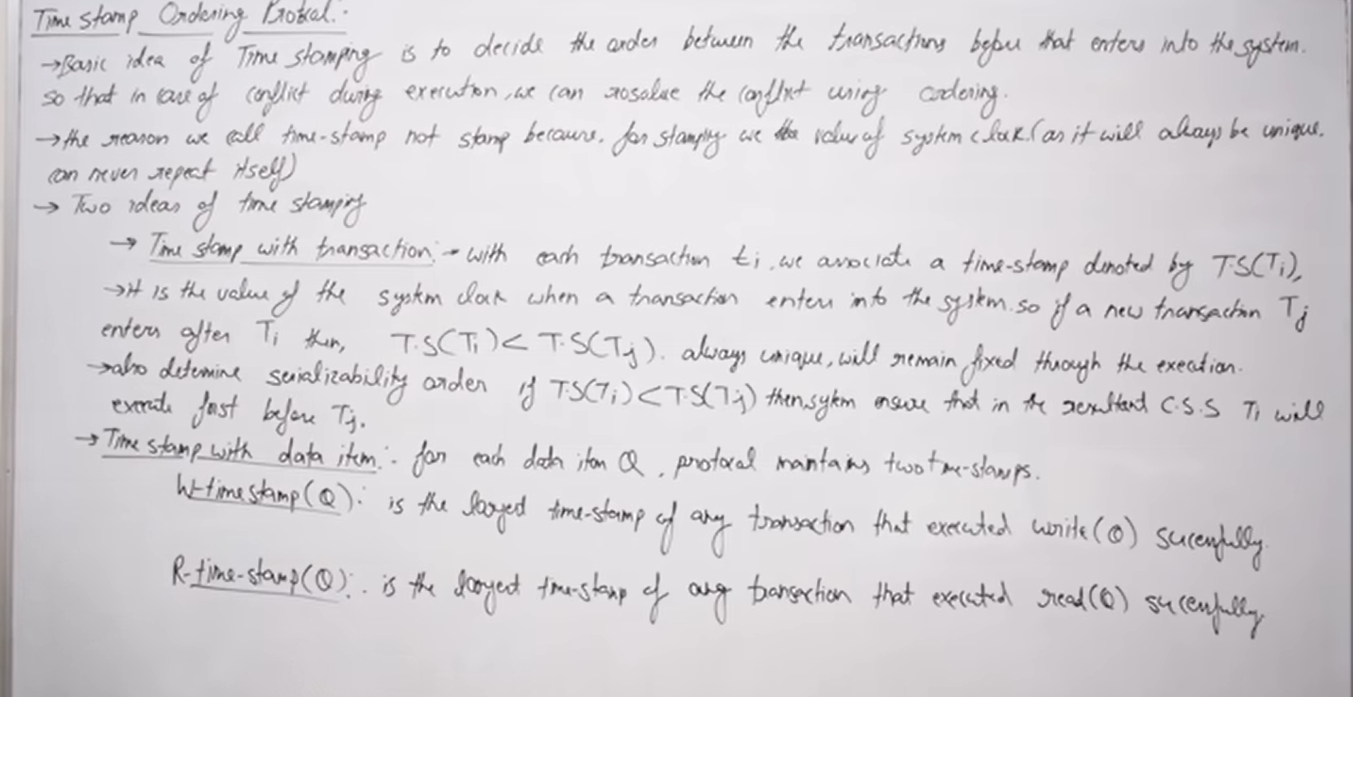 Time stamp Ordering Protocal:-
→Basic idea of Time stamping is to decide the order between the transactions before that enters into the system.
so that in case of conflict during execution, we can rosolve the conflict using ordering.
→the reason we call time-stamp not stamp because, for stamping we the value of system clock (as it will always be unique,
can never repeat itself)
→ Two ideas of time stamping
→ Time stamp with transaction:- with each transaction ti, we associate a time-stamp denoted by T.S(Ti),
→it is the value of the system clock when a transaction enters into the system. so if a new transaction Tj
enters after Ti then, T.S(Ti) < T.S(Tj). always unique, will remain fixed through the execution.
→also determine serializability order if T.S(Ti) < T.S(Tj) then, system ensure that in the resultant C.S.S Ti will
execute first before Tj.
→ Time stamp with data item:- for each data item Q, protocal maintains two time-stamps.
W-timestamp(Q): is the largest time-stamp of any transaction that executed write(Q) sucessfully.
R-time-stamp(Q):. is the largest time-stamp of any transaction that executed read(Q) sucessfully